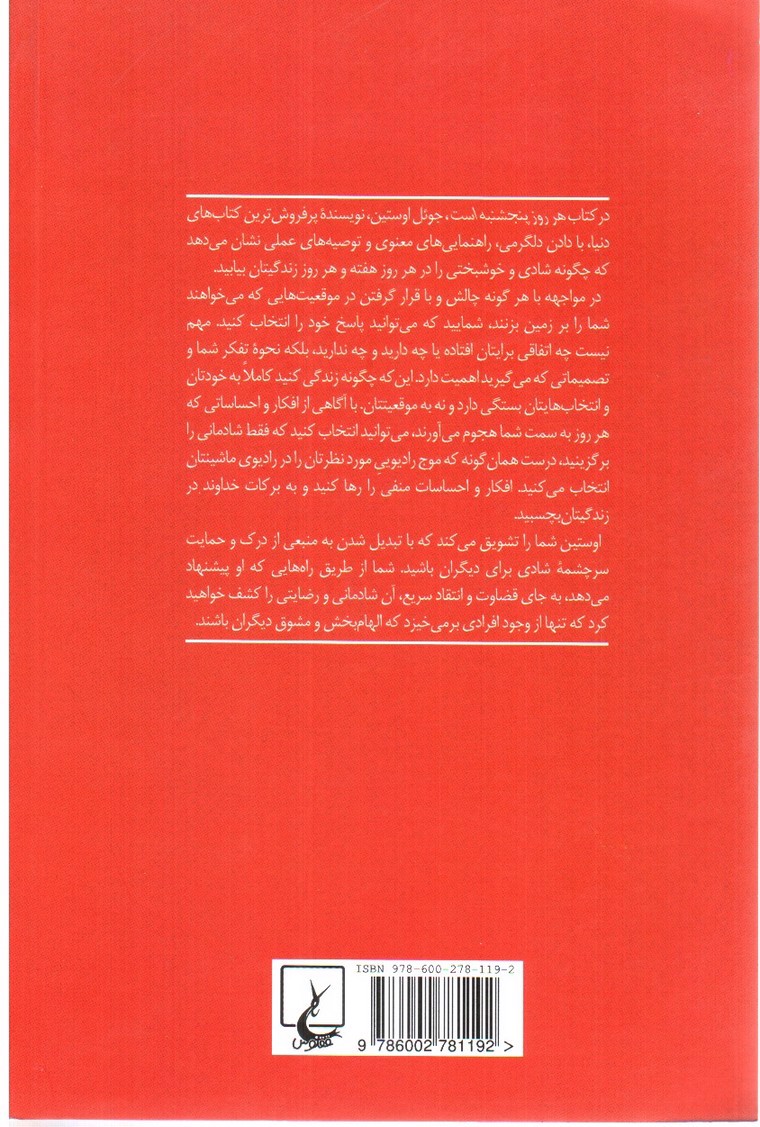 در کتاب هر روز پنجشنبه است، جوئل اوستین، نویسندهٔ پرفروش‌ترین کتاب‌های
دنیا، با دادن دلگرمی، راهنمایی‌های معنوی و توصیه‌های عملی نشان می‌دهد
که چگونه شادی و خوشبختی را در هر روز هفته و هر روز زندگیتان بیابید.
در مواجهه با هر گونه چالش و با قرار گرفتن در موقعیت‌هایی که می‌خواهند
شما را بر زمین بزنند، شمایید که می‌توانید پاسخ خود را انتخاب کنید. مهم
نیست چه اتفاقی برایتان افتاده یا چه دارید و چه ندارید، بلکه نحوهٔ تفکر شما و
تصمیماتی که می‌گیرید اهمیت دارد. این که چگونه زندگی کنید کاملاً به خودتان
و انتخاب‌هایتان بستگی دارد و نه به موقعیتتان. با آگاهی از افکار و احساساتی که
هر روز به سمت شما هجوم می‌آورند، می‌توانید انتخاب کنید که فقط شادمانی را
برگزینید، درست همان‌گونه که موج رادیویی مورد نظرتان را در رادیوی ماشینتان
انتخاب می‌کنید. افکار و احساسات منفی را رها کنید و به برکات خداوند در
زندگیتان بچسبید.
اوستین شما را تشویق می‌کند که با تبدیل شدن به منبعی از درک و حمایت
سرچشمهٔ شادی برای دیگران باشید. شما از طریق راه‌هایی که او پیشنهاد
می‌دهد، به جای قضاوت و انتقاد سریع، آن شادمانی و رضایتی را کشف خواهید
کرد که تنها از وجود افرادی برمی‌خیزد که الهام‌بخش و مشوق دیگران باشند.
ISBN 978-600-278-119-2
ققنوس
9 786002 781192 >